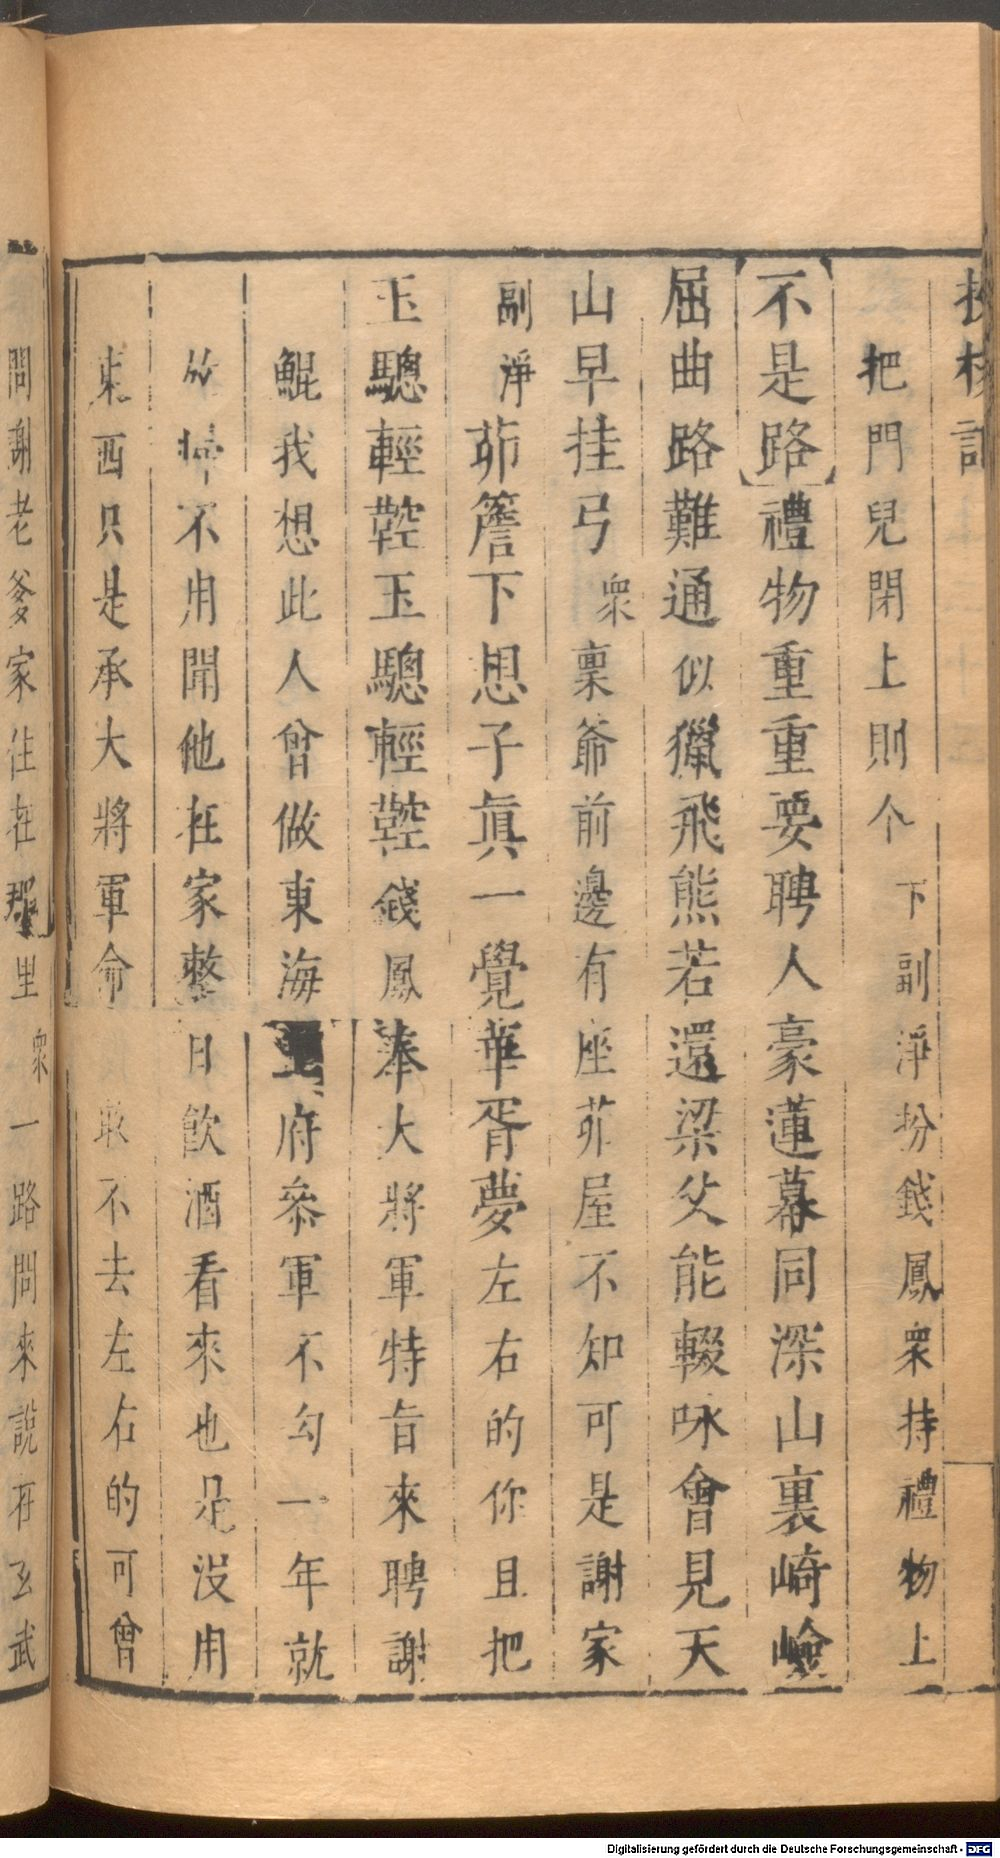 投梭記
把門兒閉上則个 下副淨扮錢鳳衆持禮物上
不是路禮物重重要聘人豪蓮幕同深山裏崎嶮
屈曲路難通似獵飛熊若還梁父能輟咏會見天
山早挂弓衆禀爺前邊有座茆屋不知可是謝家
副淨茆簷下思子眞一覺華胥夢左右的你且把
玉驄輕鞚玉驄輕鞚錢鳳奉大將軍特旨來聘謝
鯤我想此人曾做東海王府叅軍不勾一年就
不用聞他在家整日飲酒看來也是没用
東西只是承大將軍命 敢不去左右的可曾
問謝老爹家住在那里 衆一路問來說在玄武
Digitalisierung gefördert durch die Deutsche Forschungsgemeinschaft - DFG